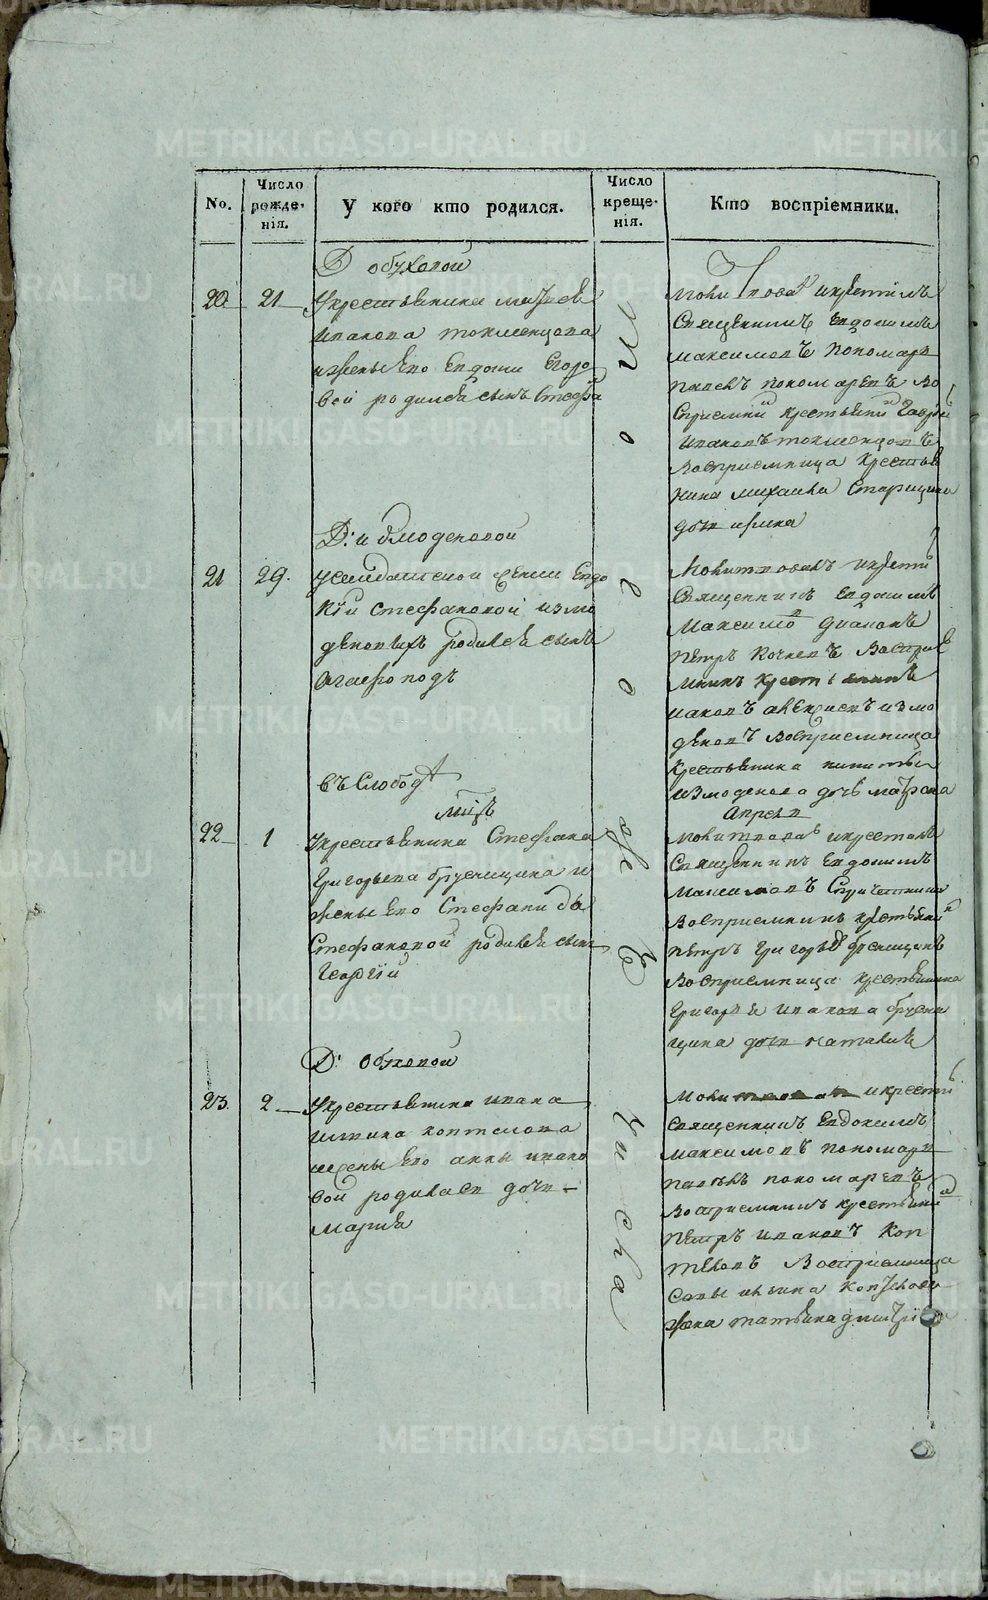 METRIKI.GASO-URAL.RU
No.
Число рожде-нія.
У кого кто родился.
Число креще-нія.
Кто воспріемники.
Того же Числа
Д обуховой
20
21
Укрестьянина матвея
иванова токменцова
ижены его Евдокии Егоро
вой родился сынъ Стефа
молитвовал икрестилъ
Священникъ Евдокимъ
максимовъ пономарь
павелъ пономаревъ Во
Сприемник крестьянин
ивановъ токменцовъ
Восприемница Крестья
нина михаила Старицина
дочь ирина
Д: измоденовой
21
29.
Усолдатской жены Евдо
Кїи стефановой измо
деновыхъ родился сынъ
Агафоподъ
Молитвовалъ икрести
Священникъ Евдокимъ
Максимов диаконъ
Петръ Кочневъ Восприе
мникъ крестьянинъ
иаковъ алексиевъ измо
деновъ Восприемница
Крестьянина никиты
измоденова дочь матрона
въ Слободѣ
мцъ
Апрель
22
1
Укрестьянина Стефана
Григорьева брусницина и
жены его Стефаниды
Стефановой родился сынъ
Георгїй
молитвовалъ икрестилъ
Священникъ Евдокимъ
максимовъ Спричетники
Восприемникъ крестьянин
петръ григорьев брусницинъ
Восприемница крестьянина
Григорья иванова брусни
цина дочь наталия
Д: Обуховой
23.
2
Укрестьянина ивана
ильина коптелова
ижены его анны ивано
вой родилася дочь
Мария
Молитвовалъ икрести
священникъ Евдокимъ
максимовъ пономарь
павелъ пономаревъ
Восприемникъ крестьянин
петръ ивановъ Коп
теловъ Восприемница
жена татьяна дмитрїева